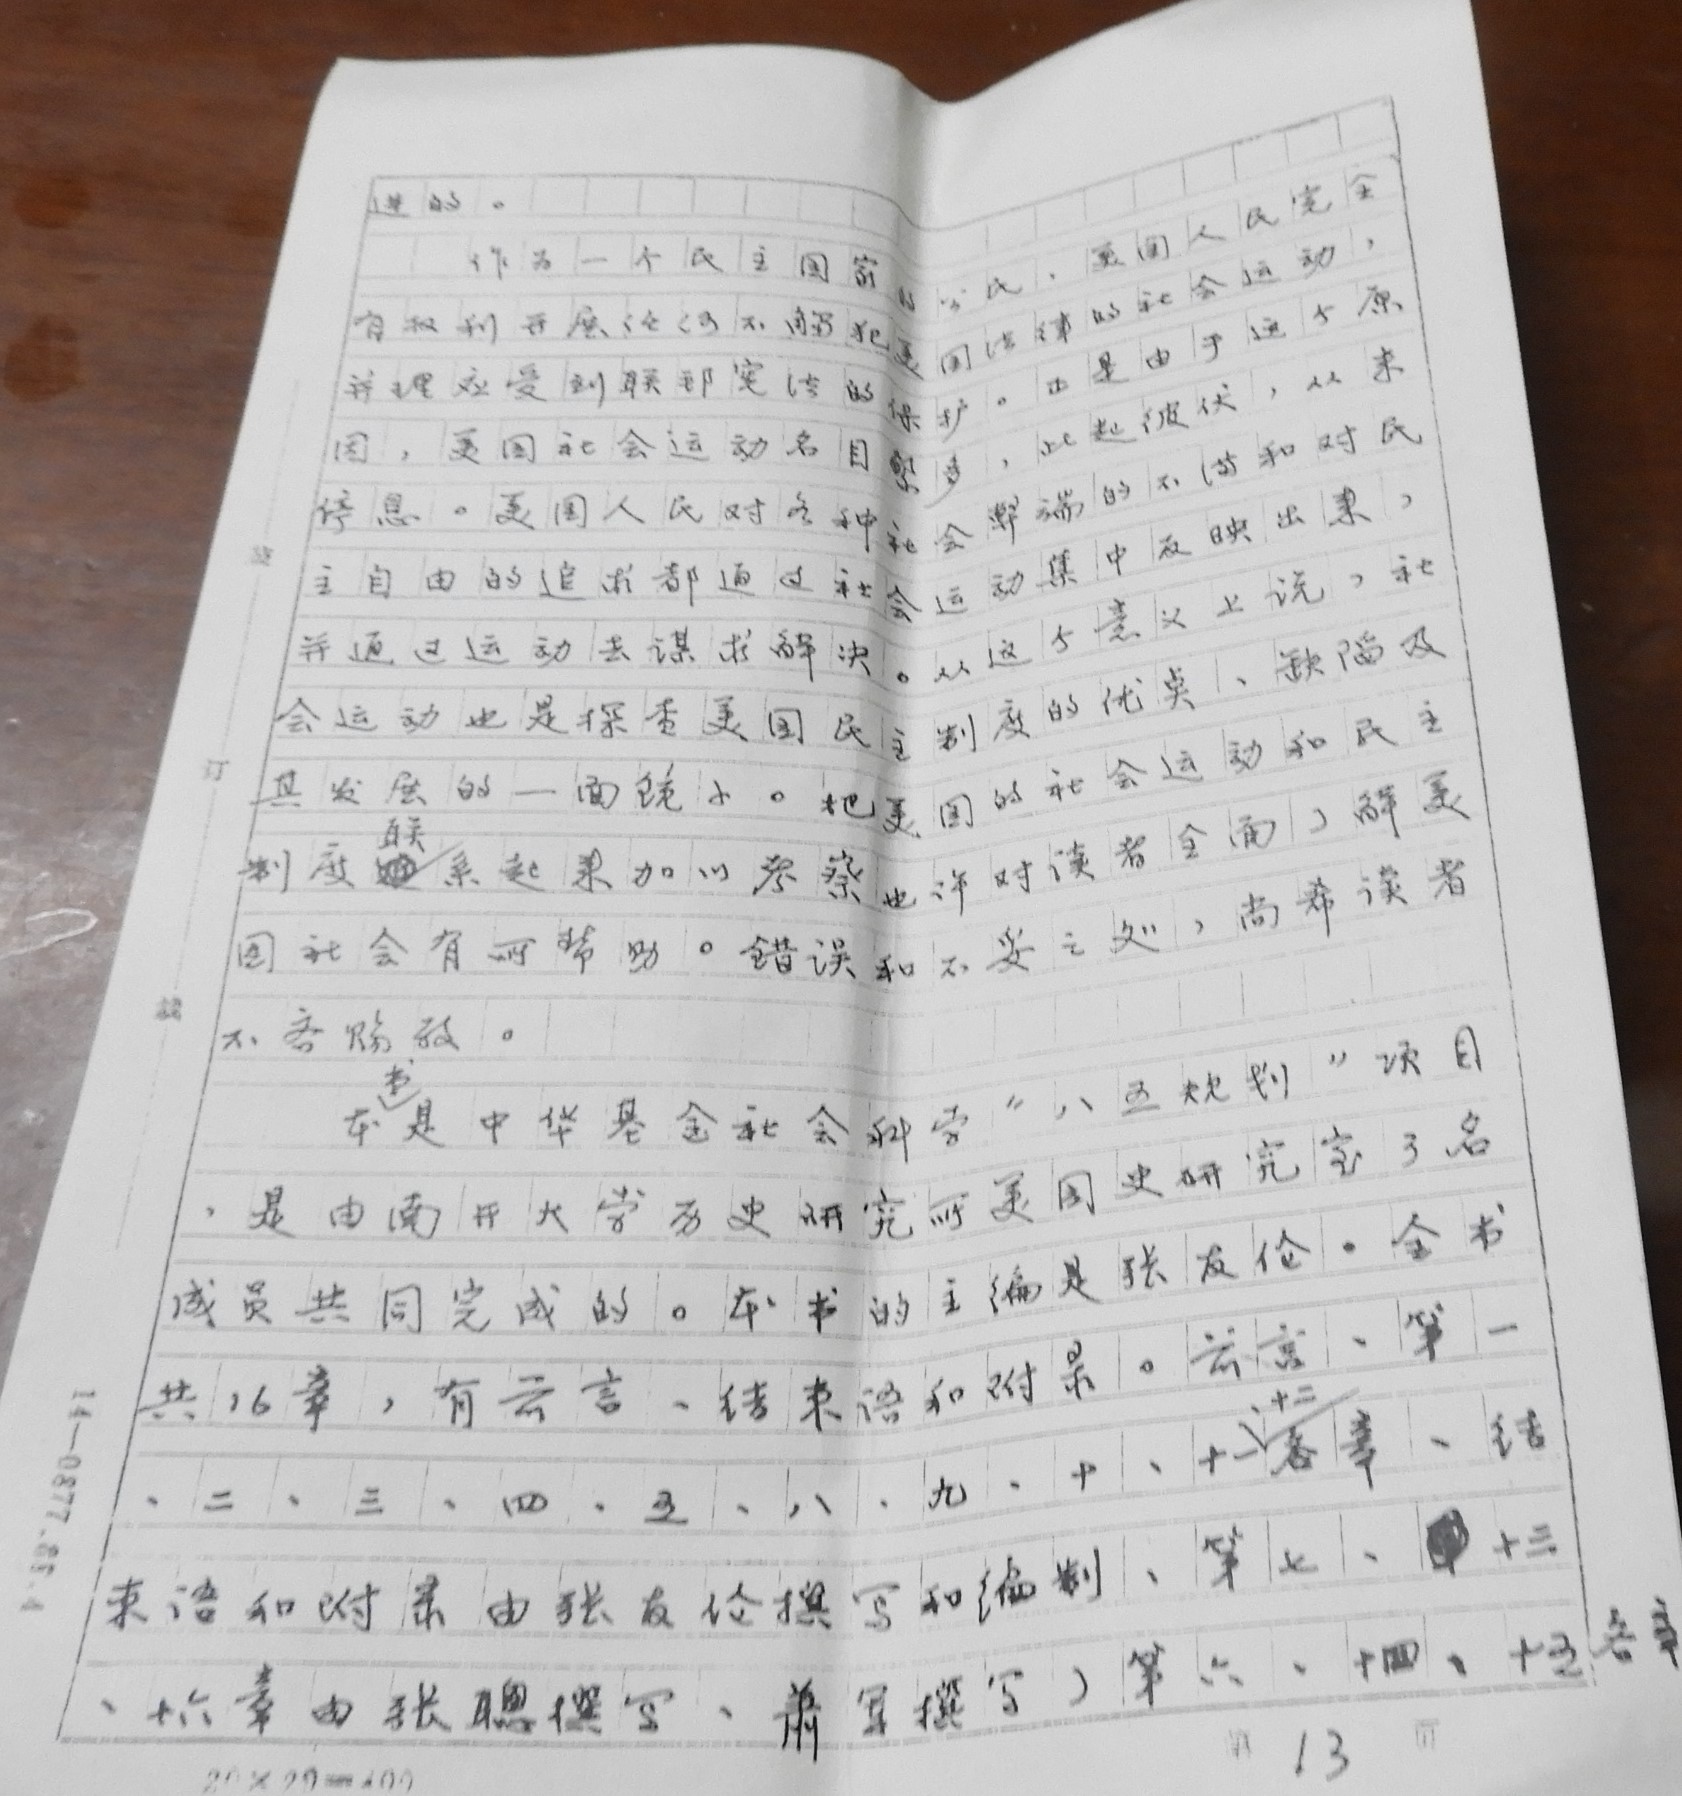 进的。
作为一个民主国家的公民，美国人民完全
有权利开展任何不触犯美国法律的社会运动，
并理应受到联邦宪法的保护。正是由于这个原
因，美国社会运动名目繁多，此起彼伏，从未
停息。美国人民对各种社会弊端的不满和对民
主自由的追求都通过社会运动集中反映出来，
并通过运动去谋求解决。从这个意义上说，社
会运动也是探查美国民主制度的优点、缺陷及
其发展的一面镜子。把美国的社会运动和民主
制度联系起来加以考察也许对读者全面了解美
国社会有所帮助。错误和不妥之处，尚希读者
不吝赐教。
本书是中华基金社会科学“八五规划”项目
，是由南开大学历史研究所美国史研究室3名
成员共同完成的。本书的主编是张友伦。全书
共16章，有云言、结束语和附录。云言、第一
、二、三、四、五、八、九、十、十一、十二各章、结
束语和附录由张友伦撰写和编制、第七、十三
、十六章由张聪撰写、萧军撰写了第六、十四、十五各章
装
订
线
14—0877.85.4
20×20=400
第 13 页